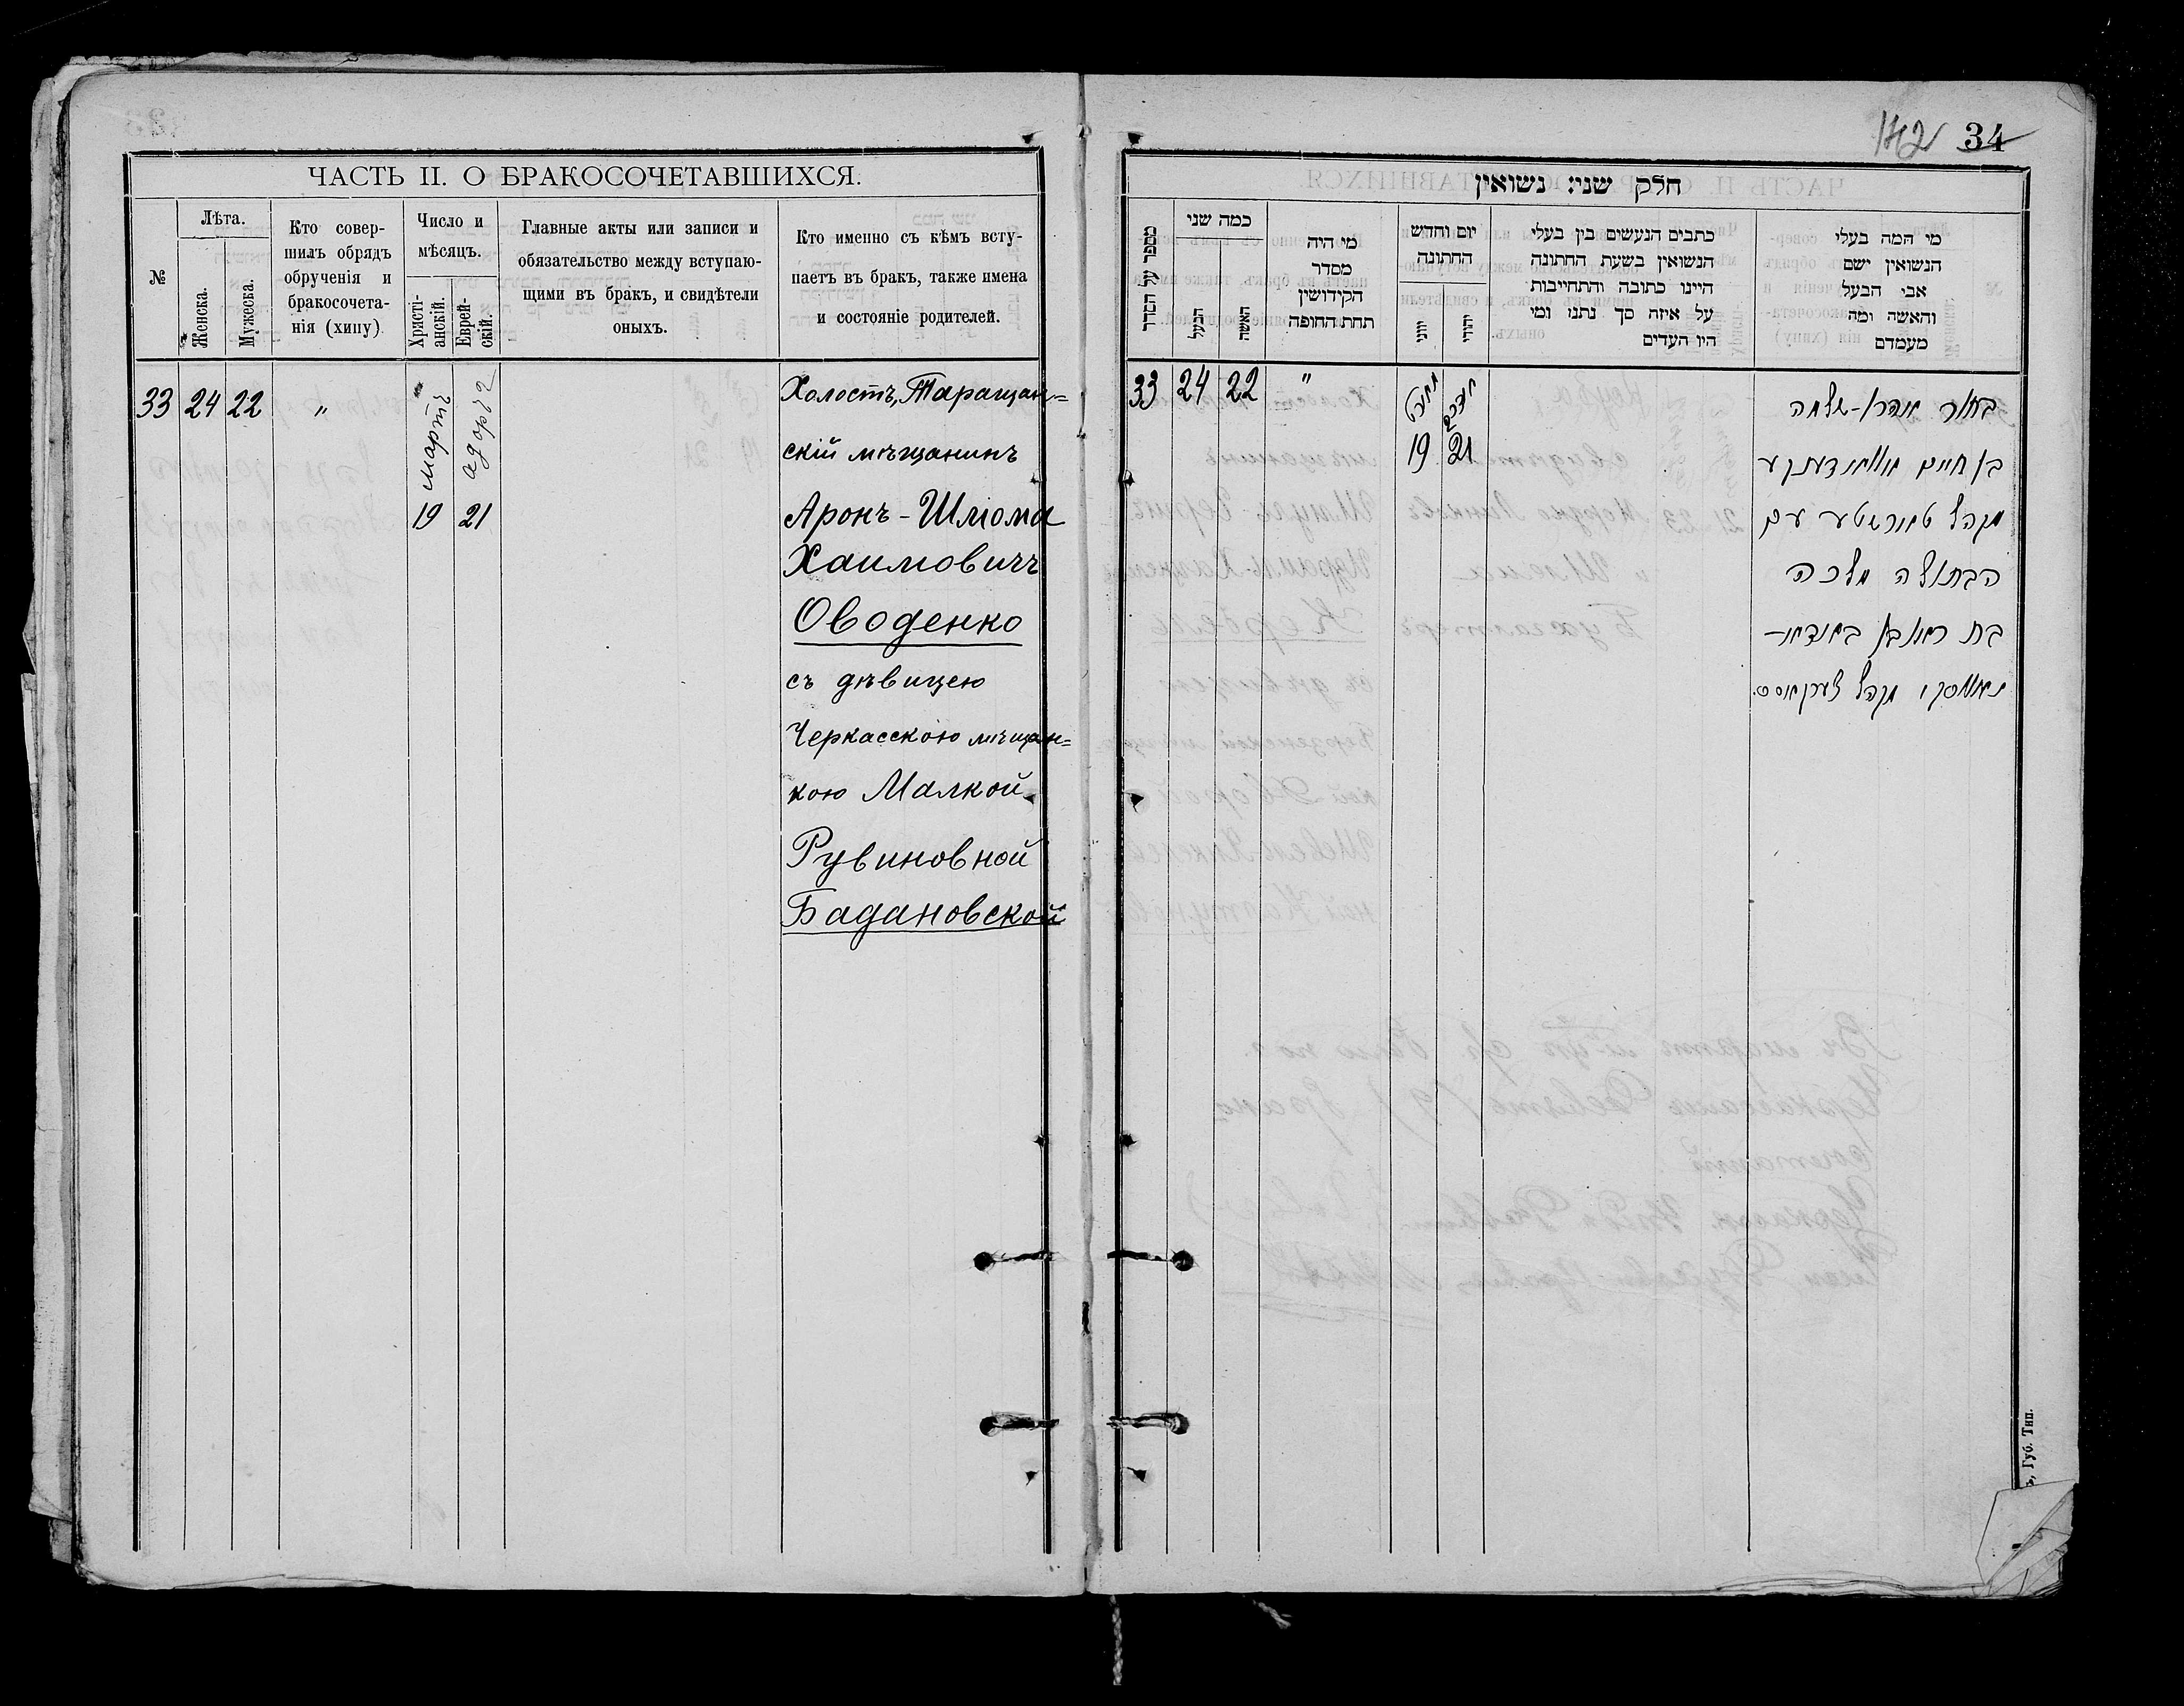 ЧАСТЬ II. О БРАКОСОЧЕТАВШИХСЯ.
№
Лѣта.
Женска.
Мужеска.
Кто совер-
шилъ обрядъ
обрученія и
бракосочета-
нія (хипу)
Число и
мѣсяцъ.
Христі-
анскій.
Еврей-
скій.
Главные акты или записи и
обязательство между вступаю-
щими въ бракъ, и свидѣтели
оныхъ.
Кто именно съ кѣмъ всту-
паетъ въ бракъ, также имена
и состояніе родителей.
33 24 22 "
мартъ
19
адоръ 2
21
Холостъ, Таращан=
скій мѣщанинъ
Аронъ-Шлюма
Хаимовичъ
Оводенко
съ дѣвицею
Черкасскою мѣщан=
кою Малкой
Рувиновной
Бадановской
142 34
חלק שני: נשואין
מספר על הסדר
כמה שני
הבעל
האשה
מי היה
מסדר
הקידושין
תחת החופה
יום וחדש
החתונה
יוני
יהודי
כתבים הנעשים בין בעלי
הנשואין בשעת החתונה
היינו כתובה והתחייבות
על איזה סך נתנו ומי
היו העדים
מי המה בעלי
הנשואין ישם
אבי הבעל
והאשה ומה
מעמדם
33 24 22 "
19 21
בחור אהרן-שלמה
בן חיים אוואדענקע
מקהל טאראשטע עם
הבתולה מלכה
בת ראובן באדאי-
נאווסקי מקהל
ъ, Губ. Тип.